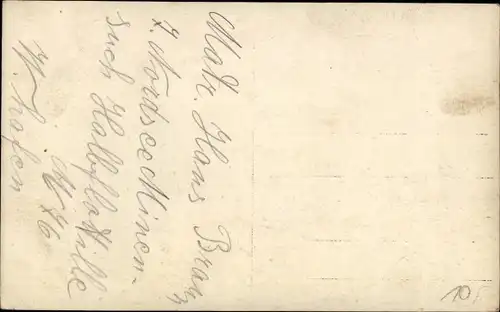 Matr. Hans Bratz
7. Nordsee Minen-
such Halbflottille
M 76
W. hafen
10